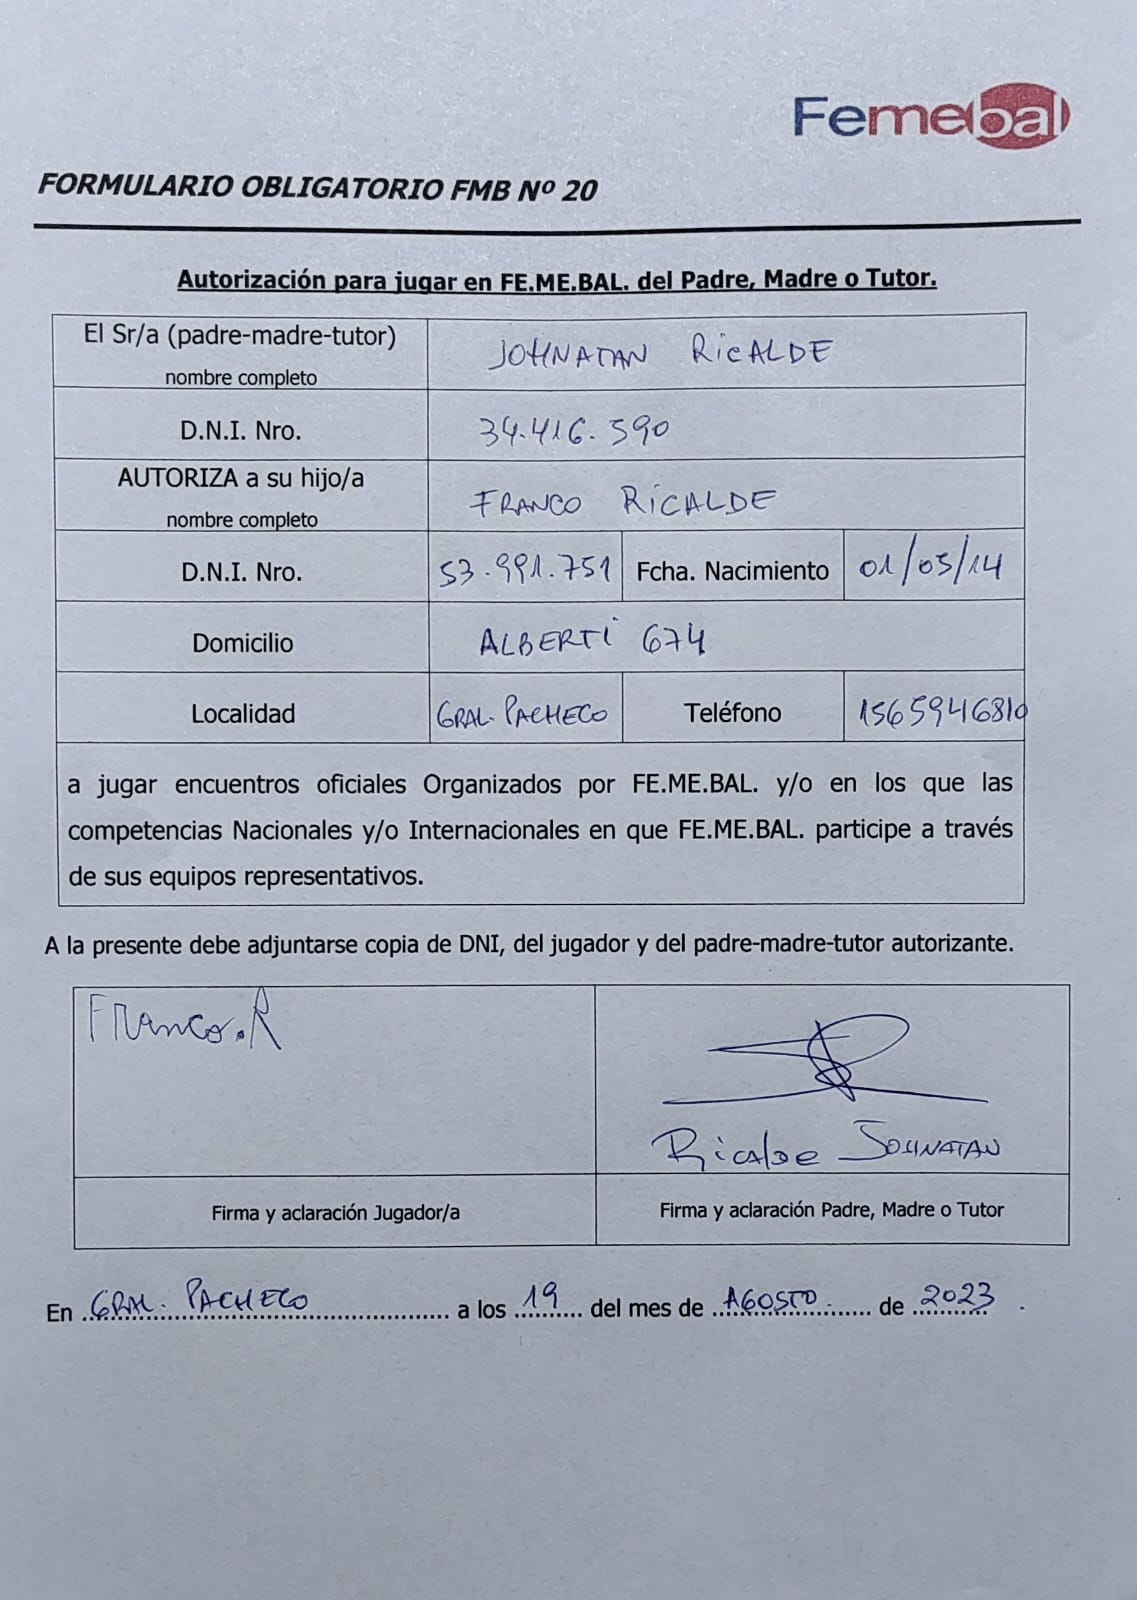 Femebal
FORMULARIO OBLIGATORIO FMB Nº 20
Autorización para jugar en FE.ME.BAL. del Padre, Madre o Tutor.
El Sr/a (padre-madre-tutor) JOHNATAN RICALDE
nombre completo
D.N.I. Nro. 34.416.590
AUTORIZA a su hijo/a FRANCO RICALDE
nombre completo
D.N.I. Nro. 53.991.751 Fcha. Nacimiento 01/05/14
Domicilio ALBERTI 674
Localidad GRAL. PACHECO Teléfono 1565946810
a jugar encuentros oficiales Organizados por FE.ME.BAL. y/o en los que las
competencias Nacionales y/o Internacionales en que FE.ME.BAL. participe a través
de sus equipos representativos.
A la presente debe adjuntarse copia de DNI, del jugador y del padre-madre-tutor autorizante.
Franco.R
Ricalde JOHNATAN
Firma y aclaración Jugador/a Firma y aclaración Padre, Madre o Tutor
En GRAL. PACHECO a los 19 del mes de AGOSTO de 2023.